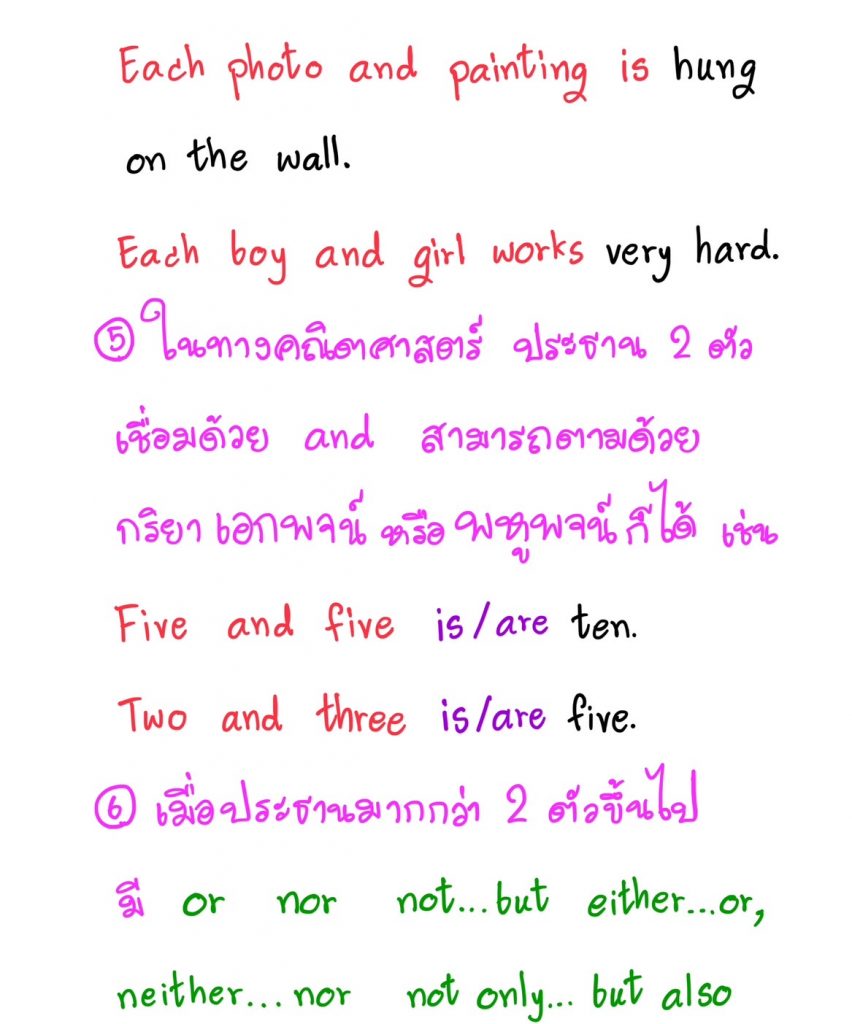 Each photo and painting is hung
on the wall.
Each boy and girl works very hard.
⑤ ในทางคณิตศาสตร์ ประธาน 2 ตัว
เชื่อมด้วย and สามารถตามด้วย
กริยาเอกพจน์ หรือ พหูพจน์ ก็ได้ เช่น
Five and five is/are ten.
Two and three is/are five.
⑥ เมื่อประธานมากกว่า 2 ตัวขึ้นไป
มี or nor not...but either...or,
neither...nor not only... but also